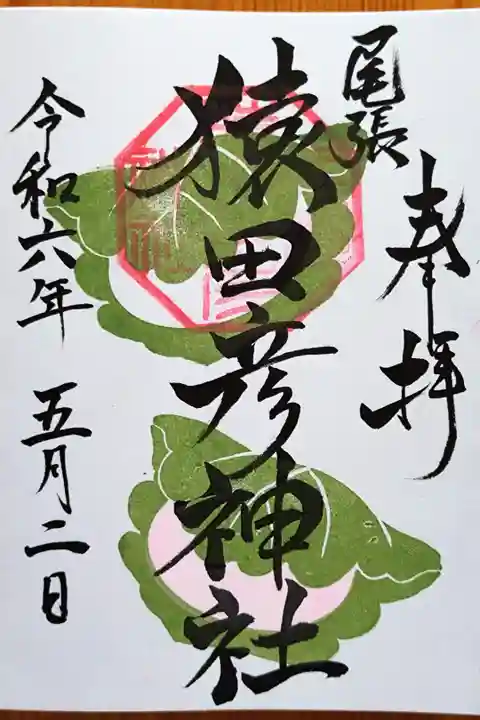 奉拝
尾張
猿田彦神社
令和六年 五月二日